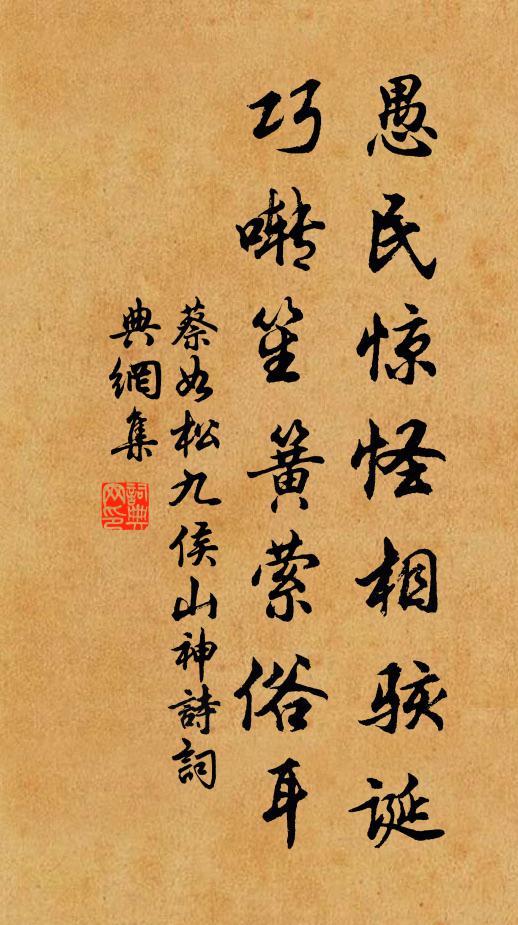 愚民惊怪相骇诞
巧啭笙簧萦俗耳
蔡如松九侯山神詩詞
典網集
詞典
网印